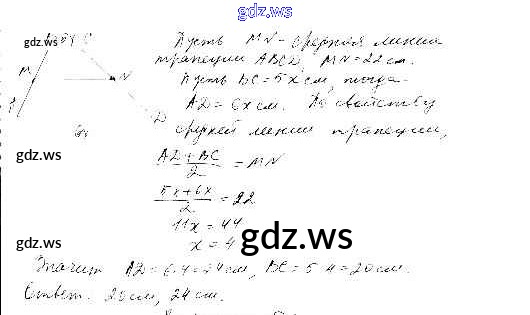 gdz.ws
gdz.ws
Пусть MN - средняя линия
трапеции ABCD, MN = 22 см.
Пусть BC = 5x см, тогда
M N
AD = 6x см. По свойству
D
средней линии трапеции,
gdz.ws gdz.ws
AD + BC
2 = MN
5x + 6x
2 = 22
11x = 44
x = 4
gdz.ws gdz.ws
Значит AD = 6·4 = 24 см, BC = 5·4 = 20 см.
Ответ. 20 см, 24 см.
gdz.ws gdz.ws